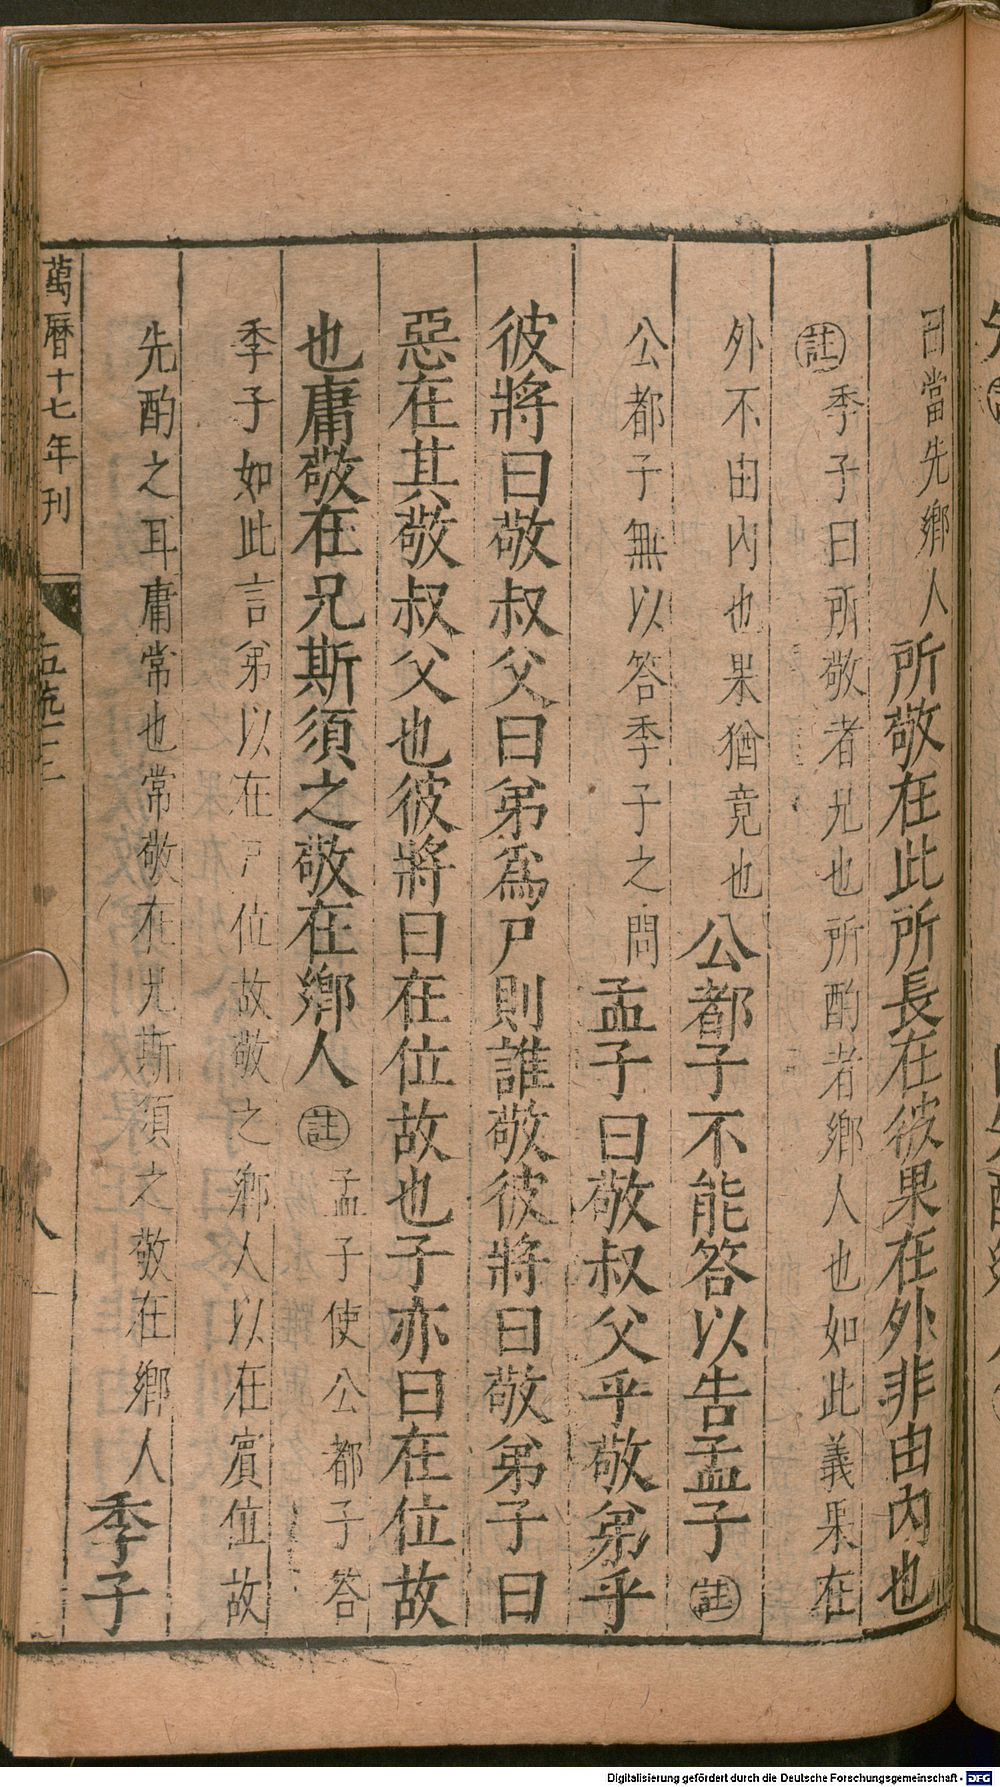 曰當先鄉人所敬在此所長在彼果在外非由內也
註季子曰所敬者兄也所酌者鄉人也如此義果在
外不由內也果猶竟也公都子不能答以告孟子註
公都子無以答季子之問孟子曰敬叔父乎敬弟乎
彼將曰敬叔父曰弟爲尸則誰敬彼將曰敬弟子曰
惡在其敬叔父也彼將曰在位故也子亦曰在位故
也庸敬在兄斯須之敬在鄉人註孟子使公都子答
季子如此言弟以在尸位故敬之鄉人以在賓位故
先酌之耳庸常也常敬在兄斯須之敬在鄉人季子
萬曆十七年刊
八
Digitalisierung gefördert durch die Deutsche Forschungsgemeinschaft - DFG